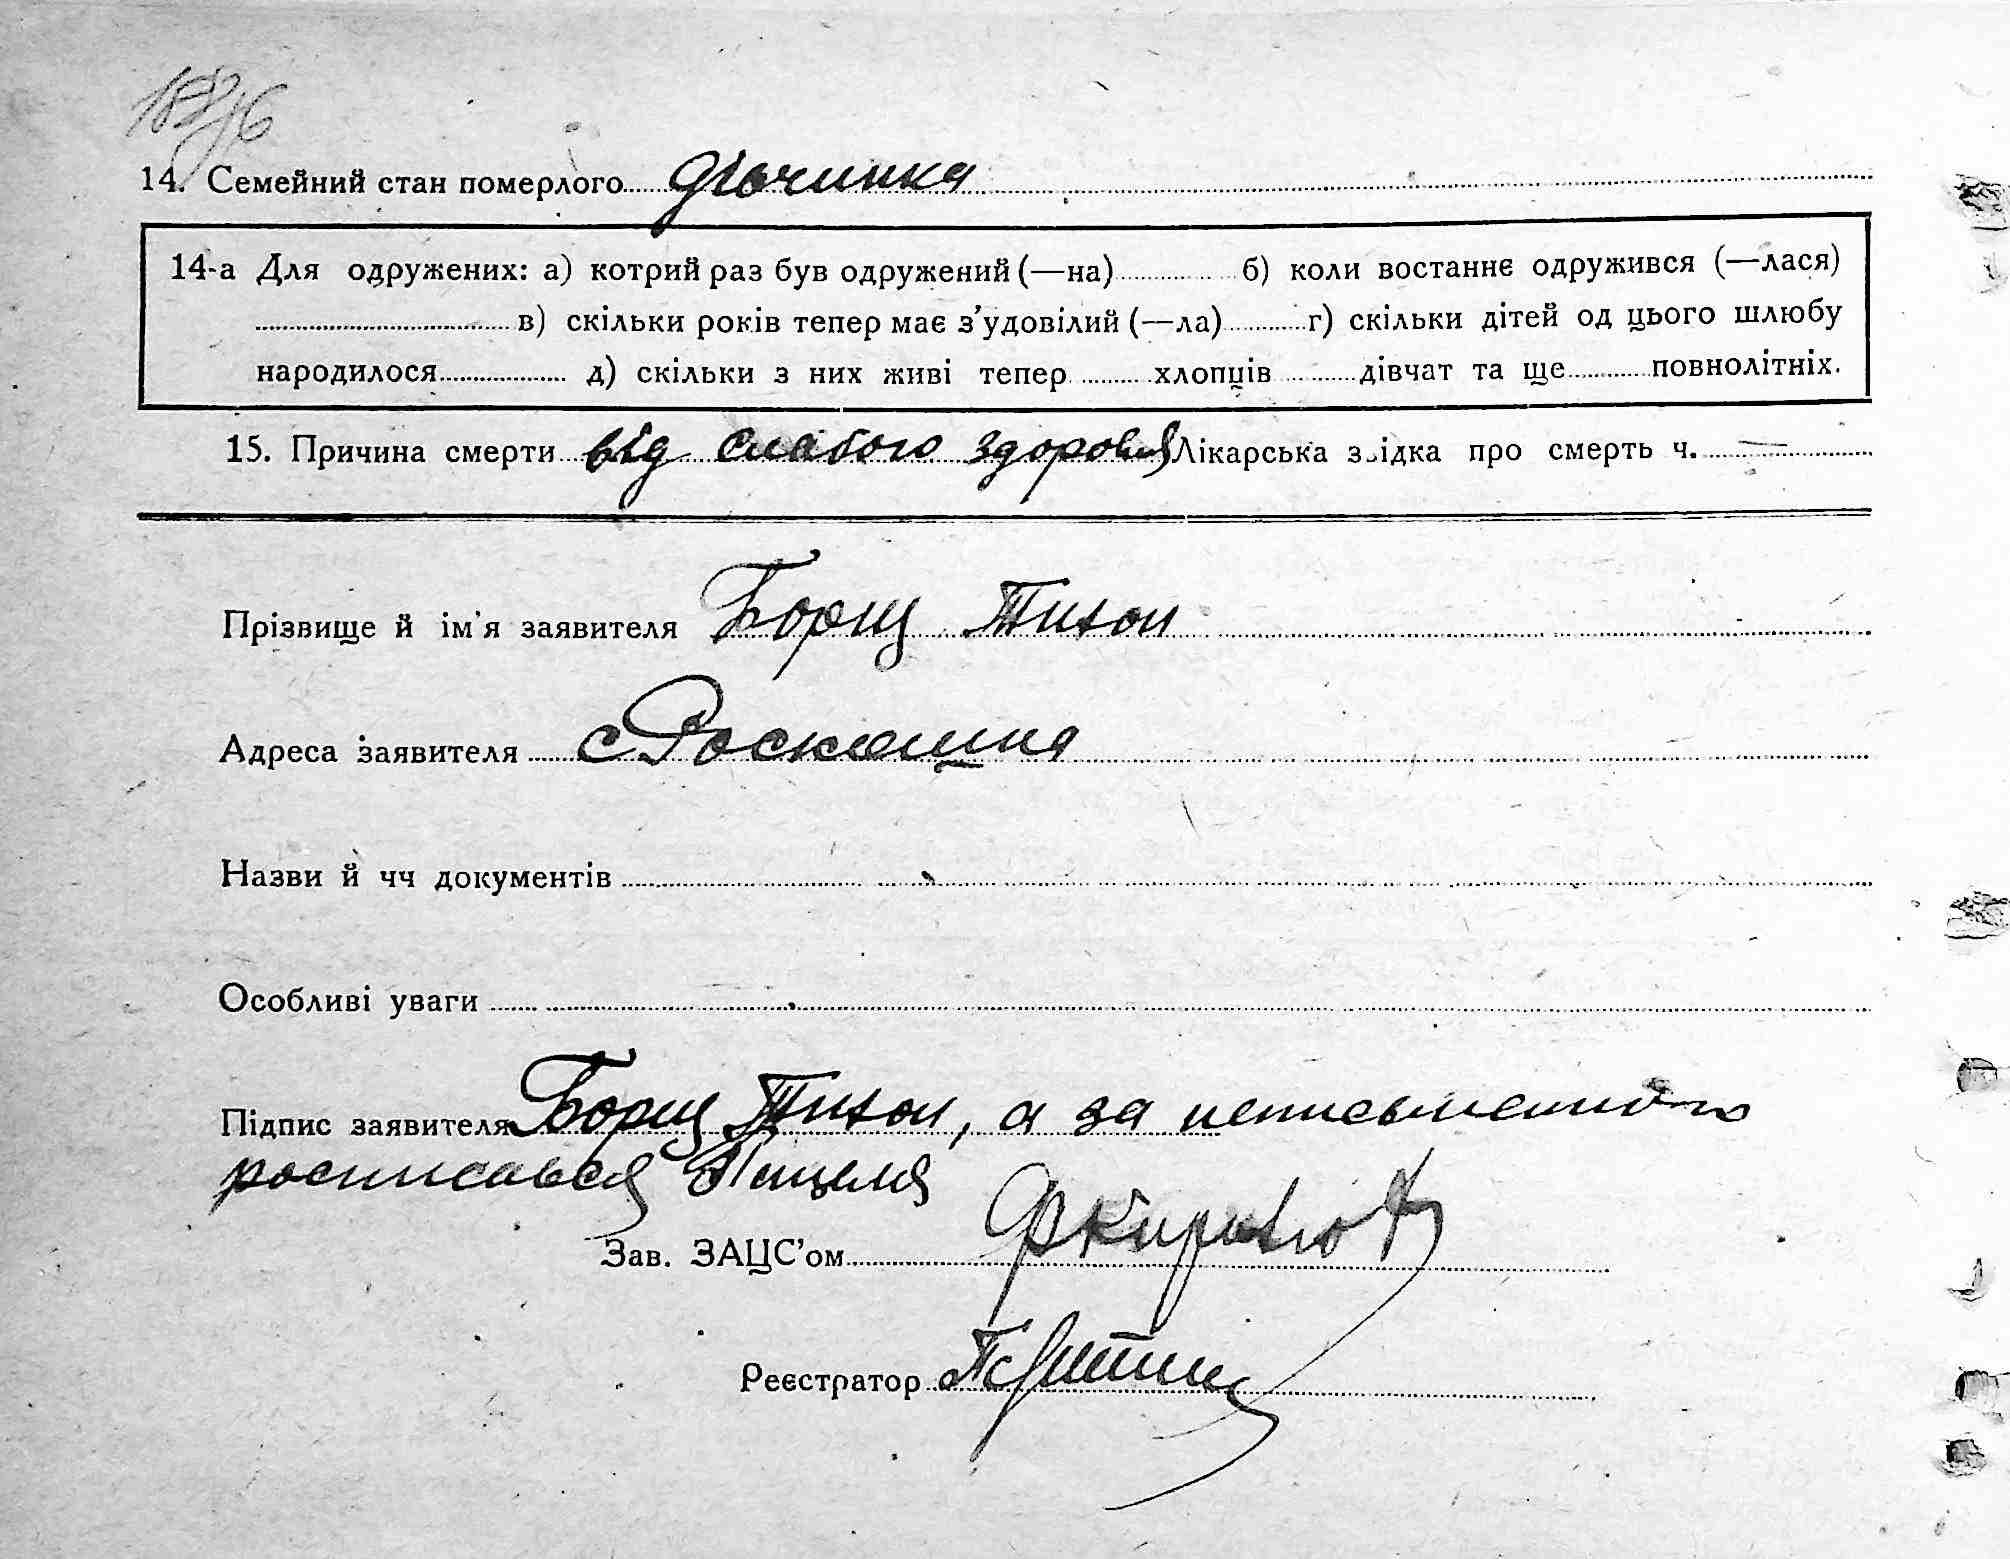 14. Семейний стан померлого дівчинка
14-а Для одружених: а) котрий раз був одружений (—на) б) коли востаннє одружився (—лася)
в) скільки років тепер має з’удовілий (—ла) г) скільки дітей од цього шлюбу
народилося д) скільки з них живі тепер хлопців дівчат та ще повнолітніх.
15. Причина смерти від слабого здоровия Лікарська звідка про смерть ч. —
Прізвище й ім'я заявителя Борщ Тихон
Адреса заявителя с Роскошна
Назви й чч документів
Особливі уваги
Підпис заявителя Борщ Тихон, а за неписьменного
росписався
Зав. ЗАЦС’ом
Реєстратор